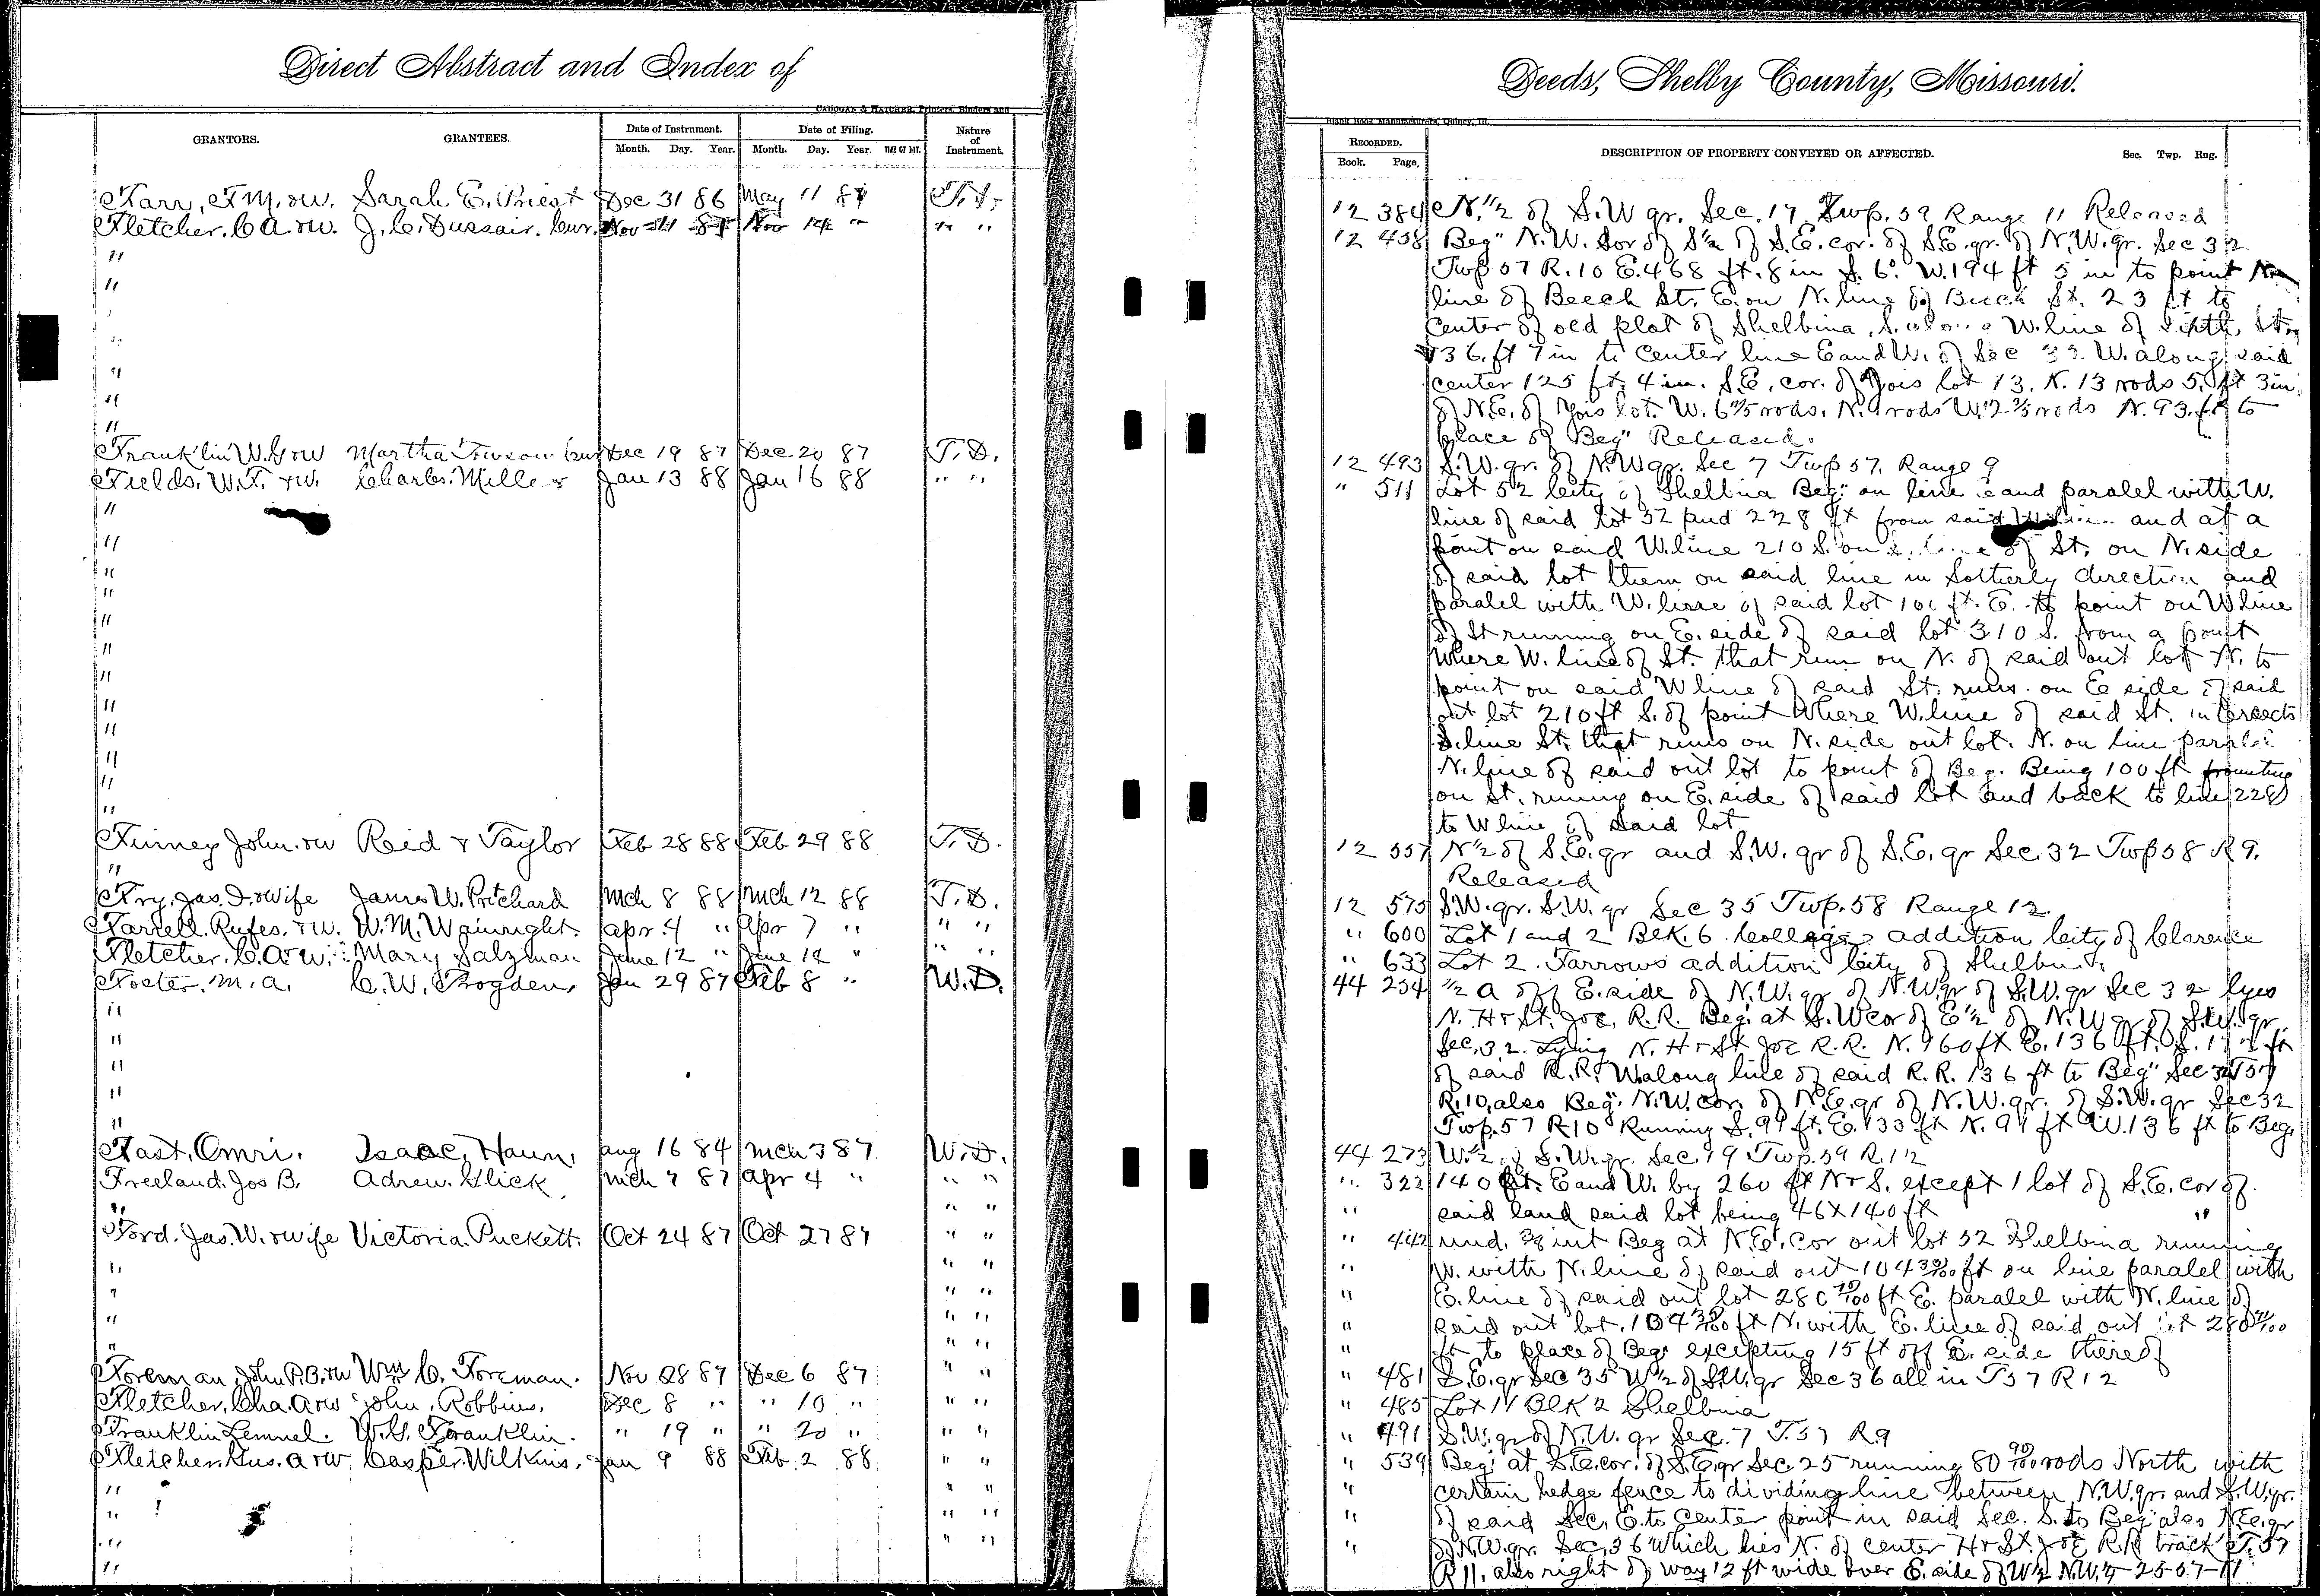 Direct Abstract and Index of
CADOGAN & HATCHER, Printers, Binders and
GRANTORS. GRANTEES. Date of Instrument. Date of Filing. Nature of Instrument.
Month. Day. Year. Month. Day. Year. TIME OF DAY.
Farr, F M. & W. Sarah E. Priest Dec 31 86 May 11 87
Fletcher. C A. & W. J. C. Dussair. Cur. Nov 87 Nov 14 " " "
"
"
"
"
"
"
"
Franklin W. G & W Martha Towson Cur Dec 19 87 Dec. 20 87 T. D.
Fields. W. T. & W. Charles. Miller Jan 13 88 Jan 16 88 " "
"
"
"
"
"
"
"
"
"
"
"
"
Finney John. & W Reid & Taylor Feb 28 88 Feb 29 88 T. D.
"
Fry. Jas. I. & Wife James W. Prichard Mch 8 88 Mch 12 88 T. D.
Farrell. Rufes. & W. W. M. Wainright. Apr 4 " Apr 7 " " "
Fletcher. C. A & W. Mary Salzman June 12 " June 12 " " "
Foster. M. A. C. W. Brogden, Jan 29 87 Feb 8 " W. D.
"
"
"
"
"
Fast, Omri. Isaac, Haun, Aug 16 84 Mch 3 87 W. D.
Freeland. Jos B. Adrew. Glick Mch 7 87 Apr 4 " " "
" " "
Ford. Jas. W. & Wife Victoria Puckett. Oct 24 87 Oct 27 87 " "
" " "
" " "
" " "
" " "
Foreman, John P. B. & W Wm C. Foreman. Nov 28 87 Dec 6 87 " "
Fletcher, Cha. A & W John. Robbins. Dec 8 " " 10 " " "
Franklin Lemuel. W. G. Franklin. " 19 " " 20 " " "
Fletcher. Gus. A & W Casper. Wilkins. Jan 9 88 Feb. 2 88 " "
" " "
" " "
" " "
"
Deeds, Shelby County, Missouri.
Blank Book Manufacturers, Quincy, Ill.
RECORDED. DESCRIPTION OF PROPERTY CONVEYED OR AFFECTED. Sec. Twp. Rng.
Book. Page.
12 384 N. 1/2 of S. W qr. Sec. 17 Twp. 59 Range 11 Released
12 458 Beg" N. W. Cor of S 1/2 of S. E. cor. of S. E. qr. of N. W. qr. Sec 32
Twp 57 R. 10 E. 468 ft. 8 in S. 6° W. 194 ft 5 in to point N
line of Beech St. E. on N. line of Beech St. 23 ft to
center of old plat of Shelbina, S. along W. line of Sixth St.
136. ft 7 in to center line E and W. of Sec 32. W. along said
center 125 ft. 4 in. S. E. cor. of lot 13. N. 13 rods 5. ft 3 in
of N. E. of lot. W. 6 rods. N. 9 rods W. 12 rods N. 93. ft to
place of Beg" Released.
12 493 S. W. qr. of N. W qr. Sec 7 Twp 57. Range 9
" 511 Lot 52 City of Shelbina Beg" on line and paralel with W.
line of said lot 52 and 228 ft from said W line and at a
point on said W. line 210 S. on S. line of St. on N. side
of said lot them on said line in Sotherly direction and
paralel with W. line of said lot 100 ft. E. to point on W line
of St running on E. side of said lot 310 S. from a point
where W. line of St. that run on N. of said out lot N. to
point on said W line of said St. runs on E side of said
out lot 210 ft S. of point where W. line of said St. intersects
S. line St. that runs on N. side out lot. N. on line paralel
N. line of said out lot to point of Beg. Being 100 ft frounting
on St. runing on E. side of said lot and back to line 228
to W line of said lot
12 557 N 1/2 of S. E. qr and S. W. qr of S. E. qr Sec. 32 Twp 58 R 9.
Released
12 575 S. W. qr. S. W. qr Sec 35 Twp. 58 Range 12
" 600 Lot 1 and 2 Blk. 6 College addition City of Clarence
" 633 Lot 2. Farrows addition City of Shelbina
44 234 1/2 A off E. side of N. W. qr of N. W. qr of S. W. qr Sec 32 lyes
N. H & St. Joe. R. R. Beg. at S. W cor of E 1/2 of N. W qr of S. W. qr
Sec. 32. Lying N. H & St Joe R. R. N. 160 ft E. 136 ft. S. ft
of said R. R. W. along line of said R. R. 136 ft to Beg" Sec 32 T 57
R. 10, also Beg. N. W. cor. of N. E. qr of N. W. qr. of S. W. qr Sec 32
Twp. 57 R 10 Running S. 99 ft. E. 133 ft N. 99 ft W. 136 ft to Beg.
44 273 W. 1/2 of S. W. qr. Sec. 19 Twp. 59 R. 12
" 322 140 ft. E and W. by 260 ft N & S. except 1 lot of S. E. cor of.
" said land said lot being 46 x 140 ft "
" 442 und. 3/8 int Beg at N. E. Cor out lot 52 Shelbina running
" W. with N. line of said out 104 30/100 ft on line paralel with
" E. line of said out lot 280 ft E. paralel with N. line of
" said out lot, 104 30/100 ft N. with E. line of said out lot 280
" ft to place of Beg. excepting 15 ft off E. side thereof
" 481 S. E. qr Sec 35 W 1/2 of S. W. qr Sec 36 all in T 57 R 12
" 485 Lot 11 Blk 2 Shelbina
" 491 S. W. qr of N. W. qr Sec. 7 T. 57 R. 9
" 539 Beg. at S. E. cor. of S. E. qr Sec. 25 running 80 90/100 rods North with
" certain hedge fence to dividing line between N. W. qr. and S. W. qr.
" of said Sec, E. to center point in said Sec. S. to Beg. also N. E. qr
" of N. W. qr. Sec. 36 which lies N. of center H & St. Joe R. R track T. 57
R 11. also right of way 12 ft wide over E. side of W 1/2 N. W. 1/4 25-57-11